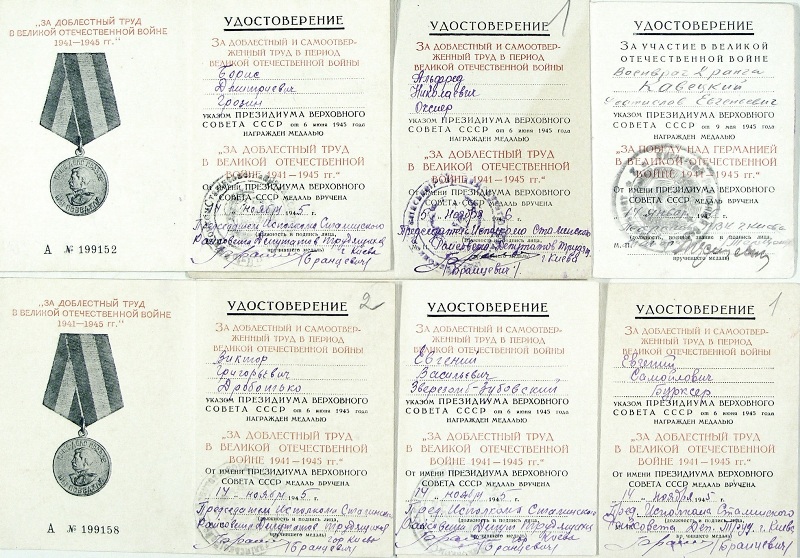 „ЗА ДОБЛЕСТНЫЙ ТРУД
В ВЕЛИКОЙ ОТЕЧЕСТВЕННОЙ ВОЙНЕ
1941—1945 гг.“
А № 199152
УДОСТОВЕРЕНИЕ
ЗА ДОБЛЕСТНЫЙ И САМООТВЕР-
ЖЕННЫЙ ТРУД В ПЕРИОД
ВЕЛИКОЙ ОТЕЧЕСТВЕННОЙ ВОЙНЫ
Борис
Дмитриевич
Грозин
УКАЗОМ ПРЕЗИДИУМА ВЕРХОВНОГО
СОВЕТА СССР от 6 июня 1945 года
НАГРАЖДЕН МЕДАЛЬЮ
„ЗА ДОБЛЕСТНЫЙ ТРУД
В ВЕЛИКОЙ ОТЕЧЕСТВЕННОЙ
ВОЙНЕ 1941—1945 гг.“
От имени ПРЕЗИДИУМА ВЕРХОВНОГО
СОВЕТА СССР МЕДАЛЬ ВРУЧЕНА
14 ноября 1945 г.
Председатель Исполкома Сталинского
Райсовета Депутатов Трудящихся
г. Киева
(Бранцевич)
1
УДОСТОВЕРЕНИЕ
ЗА ДОБЛЕСТНЫЙ И САМООТВЕР-
ЖЕННЫЙ ТРУД В ПЕРИОД
ВЕЛИКОЙ ОТЕЧЕСТВЕННОЙ ВОЙНЫ
Альфред
Николаевич
УКАЗОМ ПРЕЗИДИУМА ВЕРХОВНОГО
СОВЕТА СССР от 6 июня 1945 года
НАГРАЖДЕН МЕДАЛЬЮ
„ЗА ДОБЛЕСТНЫЙ ТРУД
В ВЕЛИКОЙ ОТЕЧЕСТВЕННОЙ
ВОЙНЕ 1941—1945 гг.“
От имени ПРЕЗИДИУМА ВЕРХОВНОГО
СОВЕТА СССР МЕДАЛЬ ВРУЧЕНА
Председатель Исполкома Сталинского
Райсовета Депутатов Трудящ.
г. Киева
(Бранцевич)
УДОСТОВЕРЕНИЕ
ЗА УЧАСТИЕ В ВЕЛИКОЙ
ОТЕЧЕСТВЕННОЙ ВОЙНЕ
Военврач 2 ранга
Кавецкий
Евгеньевич
УКАЗОМ ПРЕЗИДИУМА ВЕРХОВНОГО
СОВЕТА СССР от 9 мая 1945 года
НАГРАЖДЕН МЕДАЛЬЮ
„ЗА ПОБЕДУ НАД ГЕРМАНИЕЙ
В ВЕЛИКОЙ ОТЕЧЕСТВЕННОЙ
ВОЙНЕ 1941—1945 гг.“
От имени ПРЕЗИДИУМА ВЕРХОВНОГО
СОВЕТА СССР МЕДАЛЬ ВРУЧЕНА
января
г. Киева
М. П.
„ЗА ДОБЛЕСТНЫЙ ТРУД
В ВЕЛИКОЙ ОТЕЧЕСТВЕННОЙ ВОЙНЕ
1941—1945 гг.“
А № 199158
2
УДОСТОВЕРЕНИЕ
ЗА ДОБЛЕСТНЫЙ И САМООТВЕР-
ЖЕННЫЙ ТРУД В ПЕРИОД
ВЕЛИКОЙ ОТЕЧЕСТВЕННОЙ ВОЙНЫ
Виктор
Григорьевич
Дроботько
УКАЗОМ ПРЕЗИДИУМА ВЕРХОВНОГО
СОВЕТА СССР от 6 июня 1945 года
НАГРАЖДЕН МЕДАЛЬЮ
„ЗА ДОБЛЕСТНЫЙ ТРУД
В ВЕЛИКОЙ ОТЕЧЕСТВЕННОЙ
ВОЙНЕ 1941—1945 гг.“
От имени ПРЕЗИДИУМА ВЕРХОВНОГО
СОВЕТА СССР МЕДАЛЬ ВРУЧЕНА
14 ноября 1945 г.
Председатель Исполкома Сталинск
Райсовета Депутатов Трудящихся
гор Киева
(Бранцевич)
УДОСТОВЕРЕНИЕ
ЗА ДОБЛЕСТНЫЙ И САМООТВЕР-
ЖЕННЫЙ ТРУД В ПЕРИОД
ВЕЛИКОЙ ОТЕЧЕСТВЕННОЙ ВОЙНЫ
Евгений
Васильевич
Зверезомб-Зубовский
УКАЗОМ ПРЕЗИДИУМА ВЕРХОВНОГО
СОВЕТА СССР от 6 июня 1945 года
НАГРАЖДЕН МЕДАЛЬЮ
„ЗА ДОБЛЕСТНЫЙ ТРУД
В ВЕЛИКОЙ ОТЕЧЕСТВЕННОЙ
ВОЙНЕ 1941—1945 гг.“
От имени ПРЕЗИДИУМА ВЕРХОВНОГО
СОВЕТА СССР МЕДАЛЬ ВРУЧЕНА
14 ноября 1945 г.
Пред. Исполкома Сталинск
Райсовета Депут Трудящихся
гор Киева
(Бранцевич)
1
УДОСТОВЕРЕНИЕ
ЗА ДОБЛЕСТНЫЙ И САМООТВЕР-
ЖЕННЫЙ ТРУД В ПЕРИОД
ВЕЛИКОЙ ОТЕЧЕСТВЕННОЙ ВОЙНЫ
Евгений
Самойлович
Бурксер
УКАЗОМ ПРЕЗИДИУМА ВЕРХОВНОГО
СОВЕТА СССР от 6 июня 1945 года
НАГРАЖДЕН МЕДАЛЬЮ
„ЗА ДОБЛЕСТНЫЙ ТРУД
В ВЕЛИКОЙ ОТЕЧЕСТВЕННОЙ
ВОЙНЕ 1941—1945 гг.“
От имени ПРЕЗИДИУМА ВЕРХОВНОГО
СОВЕТА СССР МЕДАЛЬ ВРУЧЕНА
14 ноября 1945 г.
Пред. Исполкома Сталинского
Райсовета Деп. Труд. г. Киева
(Бранцевич)